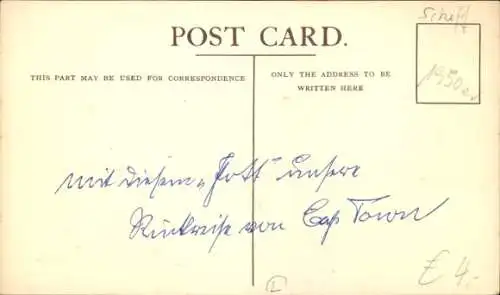 POST CARD.
THIS PART MAY BE USED FOR CORRESPONDENCE
ONLY THE ADDRESS TO BE
WRITTEN HERE
1950er
mit diesem „Pott“ unsere
Rückreise von Cap Town
L
£ 4.-